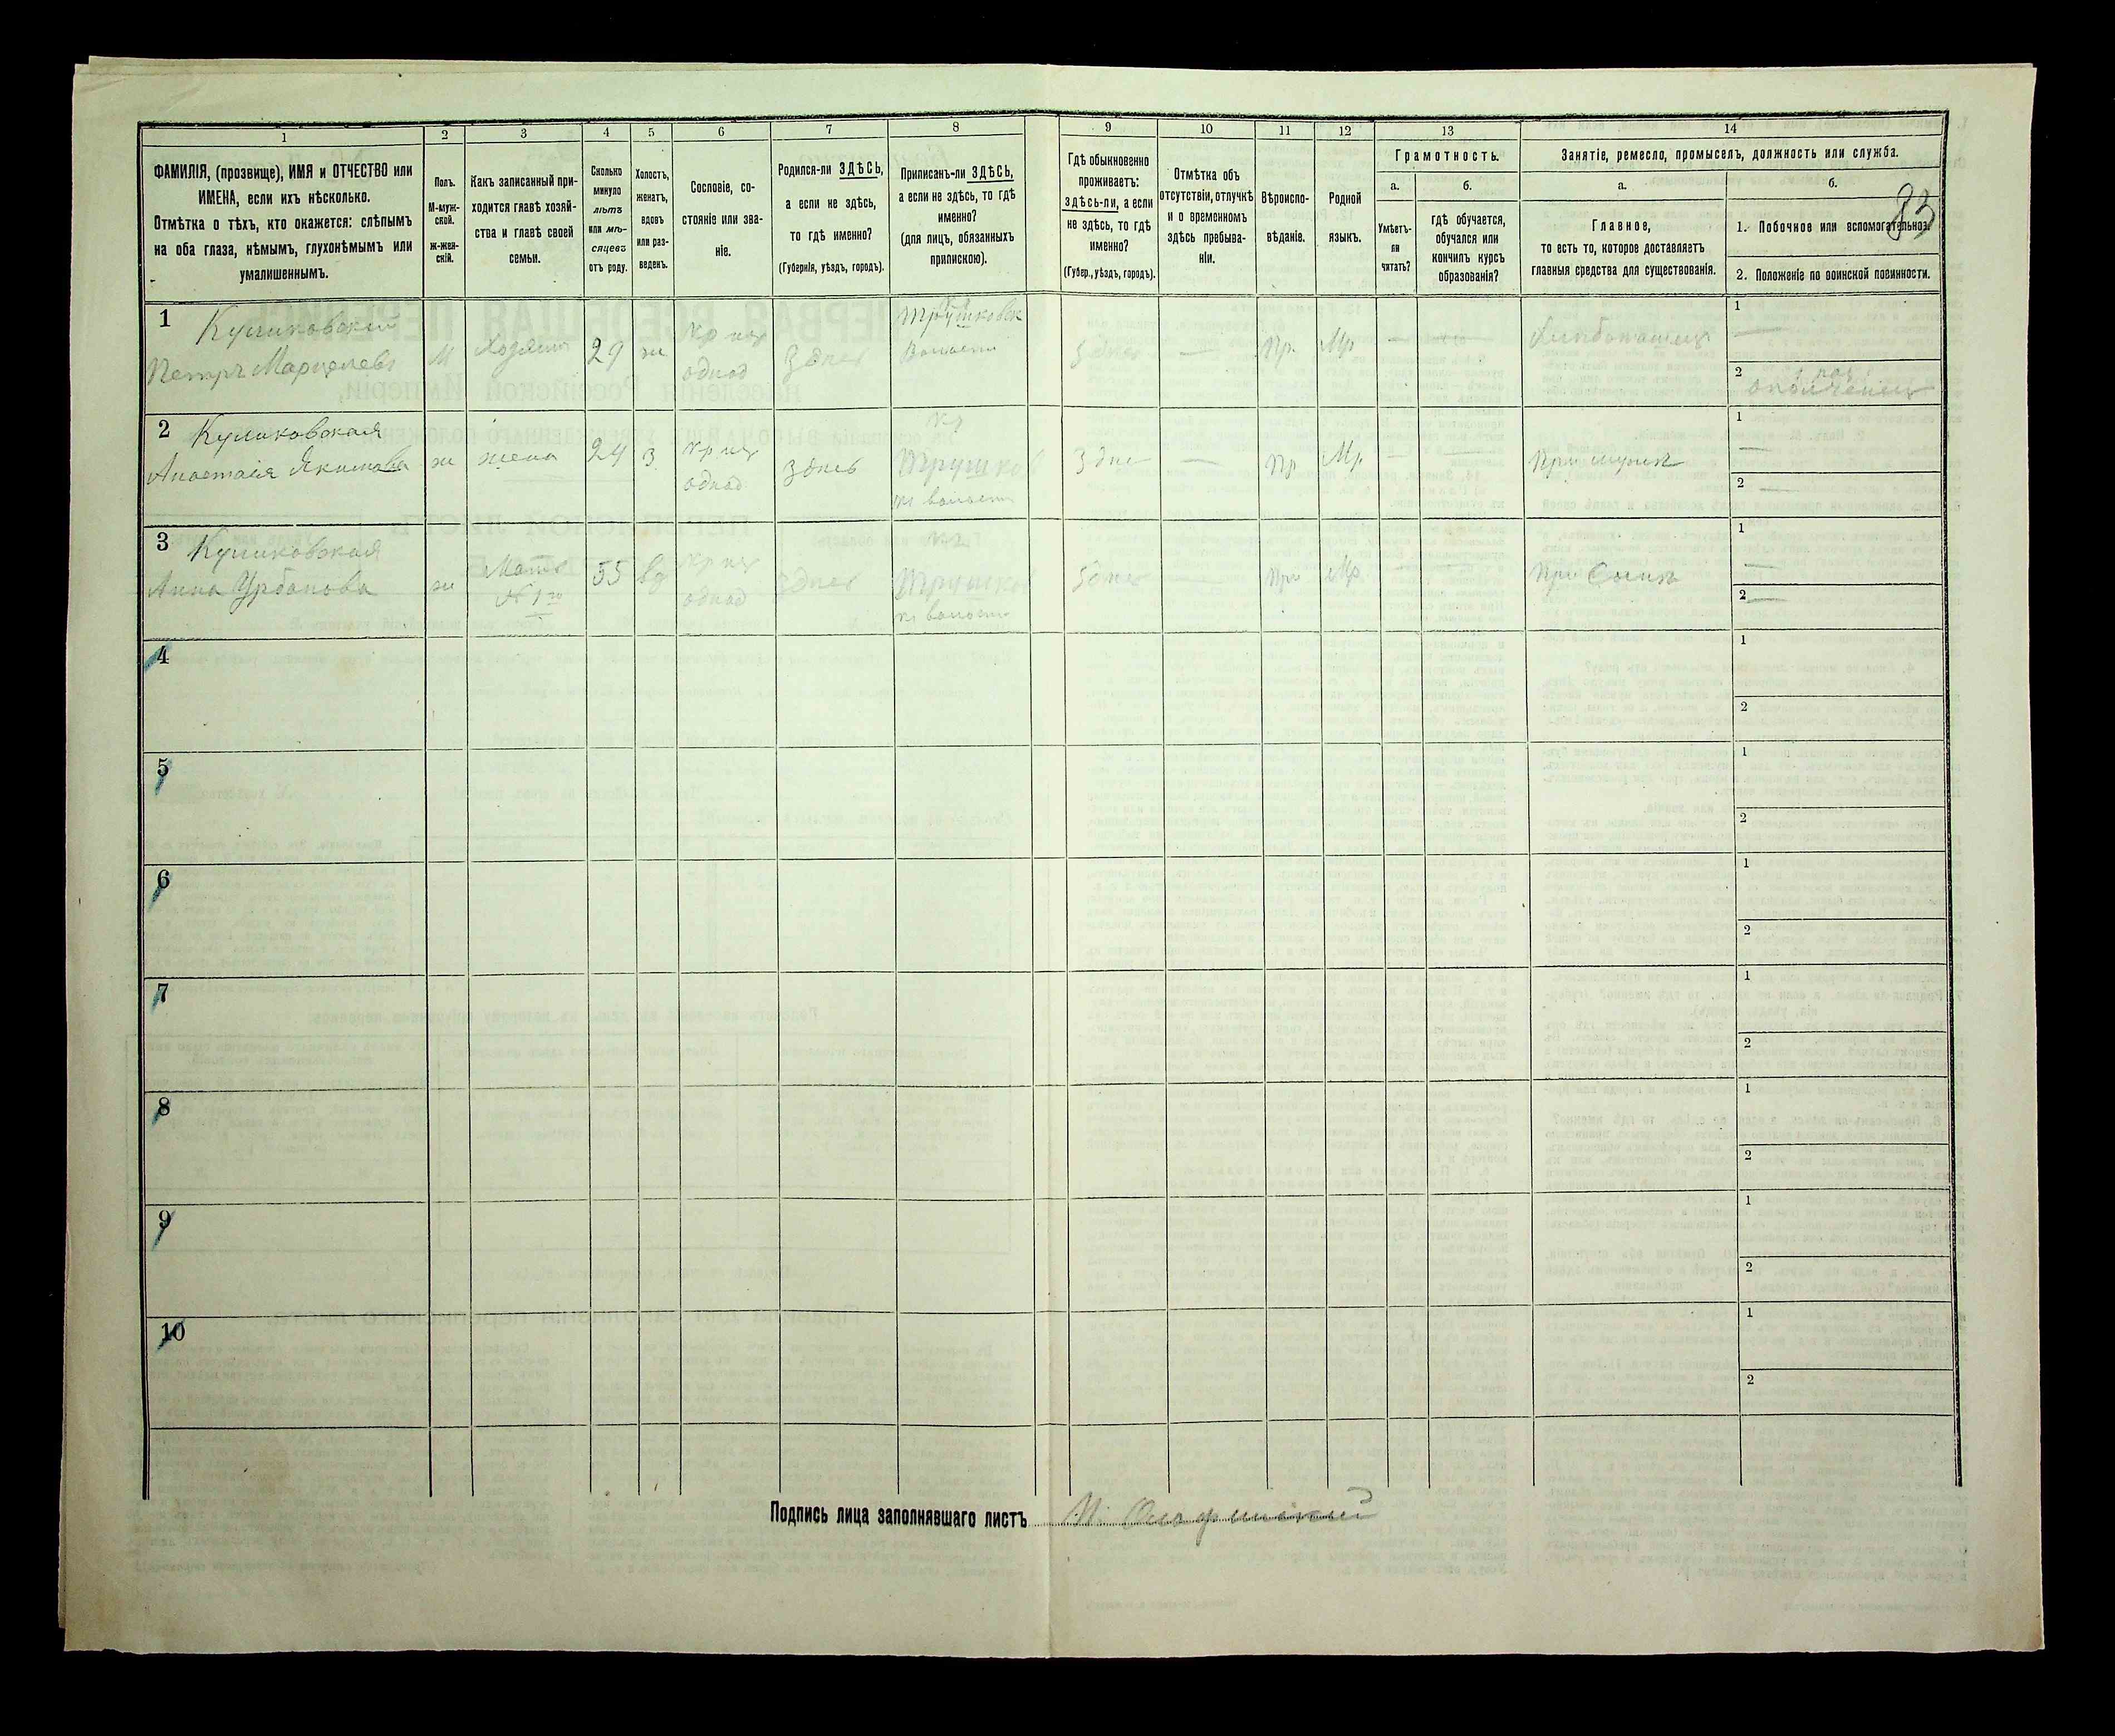 1 2 3 4 5 6 7 8 9 10 11 12 13 14
ФАМИЛІЯ, (прозвище), ИМЯ и ОТЧЕСТВО или
ИМЕНА, если ихъ нѣсколько.
Отмѣтка о тѣхъ, кто окажется: слѣпымъ
на оба глаза, нѣмымъ, глухонѣмымъ или
умалишеннымъ.
Полъ.
М-муж-
ской.
ж-жен-
скій.
Какъ записанный при-
ходится главѣ хозяй-
ства и главѣ своей
семьи.
Сколько
минуло
лѣтъ
или мѣ-
сяцевъ
отъ роду.
Холостъ,
женатъ,
вдовъ
или раз-
веденъ.
Сословіе, со-
стояніе или зва-
ніе.
Родился-ли ЗДѢСЬ,
а если не здѣсь,
то гдѣ именно?
(Губернія, уѣздъ, городъ).
Приписанъ-ли ЗДѢСЬ,
а если не здѣсь, то гдѣ
именно?
(для лицъ, обязанныхъ
припискою).
Гдѣ обыкновенно
проживаетъ:
здѣсь-ли, а если
не здѣсь, то гдѣ
именно?
(Губер., уѣздъ, городъ).
Отмѣтка объ
отсутствіи, отлучкѣ
и о временномъ
здѣсь пребыва-
ніи.
Вѣроиспо-
вѣданіе.
Родной
языкъ.
Грамотность.
а.
Умѣетъ-
ли
читать?
б.
гдѣ обучается,
обучался или
кончилъ курсъ
образованія?
Занятіе, ремесло, промыселъ, должность или служба.
а.
Главное,
то есть то, которое доставляетъ
главныя средства для существованія.
б.
83
1. Побочное или вспомогательное.
2. Положеніе по воинской повинности.
1
Куликовскій
Петръ
М
Хозяинъ
29
ж
Кр нъ
однод
Здѣсь
Трушковск
Волости
Здѣсь
—
Пр.
Мр
—
—
Хлѣбопашецъ
1
—
2
ополченецъ
2
Куликовская
Анастасія Якимова
ж
жена
24
з
Кр нъ
однод
Здѣсь
Трушков
волости
Здѣс
—
Пр
Мр
—
—
При мужѣ
1
—
2
—
3
Куликовская
Анна Урбанова
ж
Мать
№ 1го
55
вд
Кр нъ
однод
Здѣсь
Трушков
волости
Здѣсь
—
Пр
Мр
—
—
При Сынѣ
1
—
2
—
4
1
2
5
1
2
6
1
2
7
1
2
8
1
2
9
1
2
10
1
2
Подпись лица заполнявшаго листъ